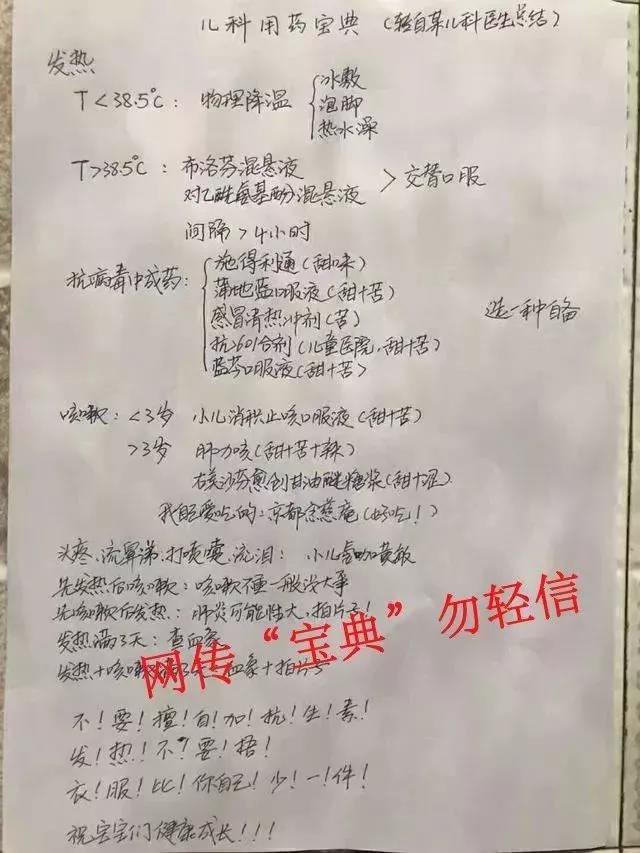 儿科用药宝典 (轻自某儿科医生总结)
发热
T<38.5℃: 物理降温 { 冰敷
泡脚
热水澡
T>38.5℃: 布洛芬混悬液
对乙酰氨基酚混悬液 > 交替口服
间隔>4小时
抗病毒中成药: { 施得利通(甜味)
蒲地蓝口服液(甜+苦)
感冒清热冲剂(苦)
抗601合剂(儿童医院,甜+苦)
蓝芩口服液(甜+苦)
选一种自备
咳嗽: <3岁 小儿消积止咳口服液(甜+苦)
>3岁 肺力咳(甜+苦+辣)
右美沙芬愈创甘油醚糖浆(甜+涩)
我自己爱吃的: 京都念慈庵(好吃!)
头疼、流鼻涕、打喷嚏、流泪: 小儿氨咖黄敏
先发热后咳嗽: 咳嗽不重一般没大事
先咳嗽后发热: 肺炎可能性大,拍片子!
发热满3天: 查血象
发热+咳嗽满3天: 血象+拍片子
网传“宝典”勿轻信
不!要!擅!自!加!抗!生!素!
发!热!不!要!捂!
衣!服!比!你自己!少!一!件!
祝宝宝们健康成长!!!